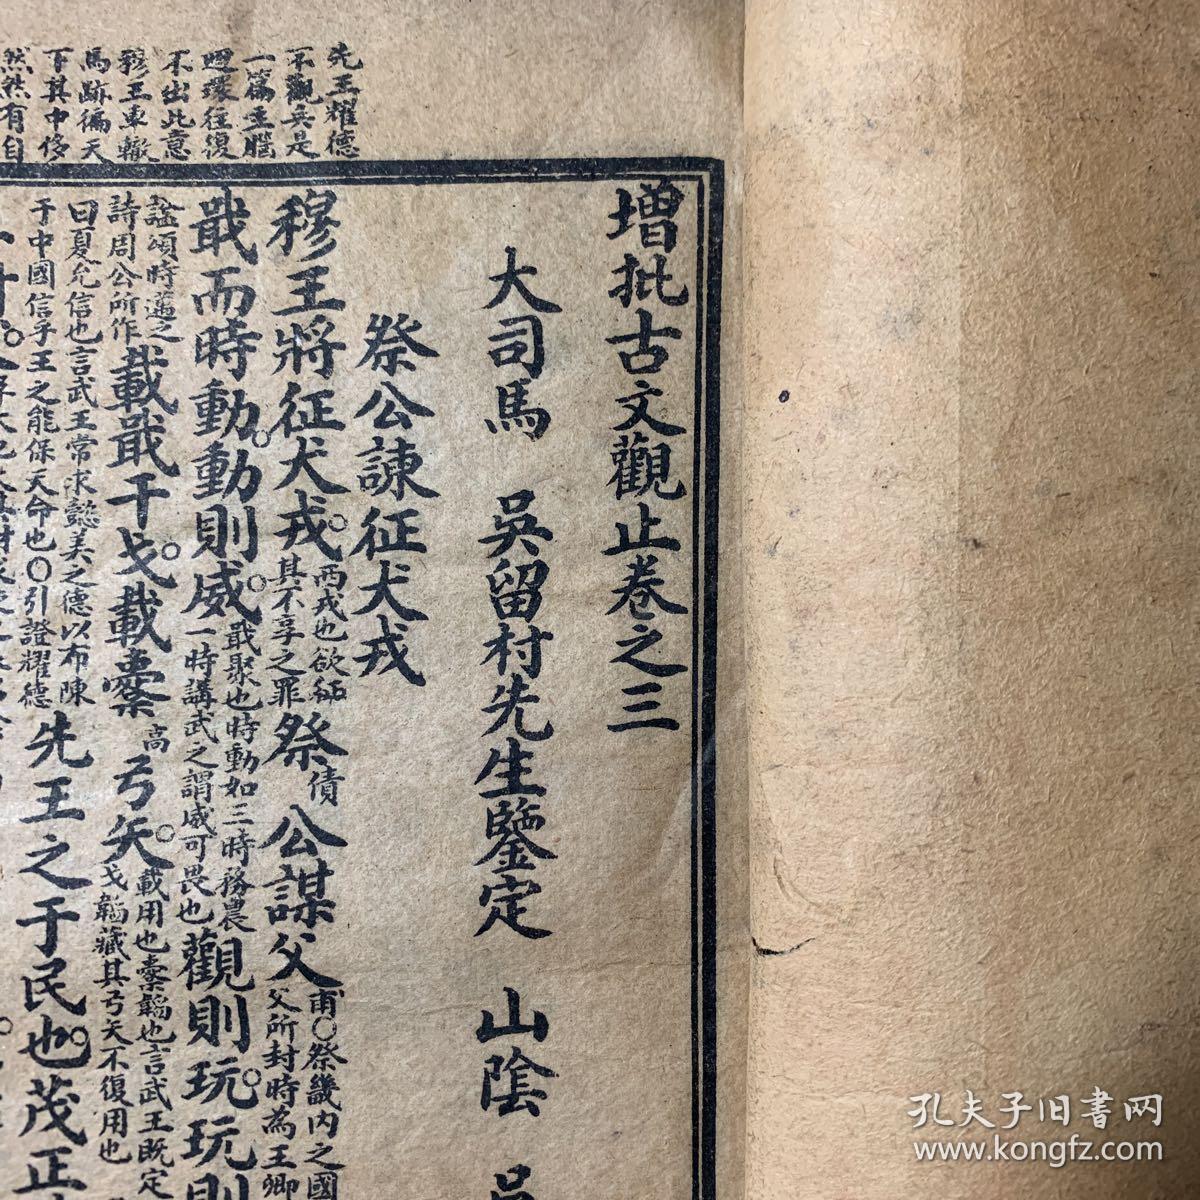 增批古文觀止卷之三
大司馬 吳留村先生鑒定 山陰
祭公諫征犬戎
穆王將征犬戎。西戎也欲征其不享之罪祭債公謀父甫○祭畿內之國父所封時為王卿
戢而時動。動則威。戢聚也時動如三時務農一時講武之謂威可畏也觀則玩。玩則
謚頌時邁之詩周公所作載戢干戈。載櫜高弓矢。載用也櫜韜也言武王既定
戈韜藏其弓矢不復用也
曰夏允信也言武王常求懿美之德以布陳
于中國信乎王之能保天命也○引證耀德先王之于民也。茂正
先王耀德
不觀兵是
一篇主腦
迴環往復
不出此意
穆王車轍
馬跡徧天
下其中侈
然有自
孔夫子旧书网
www.kongfz.com